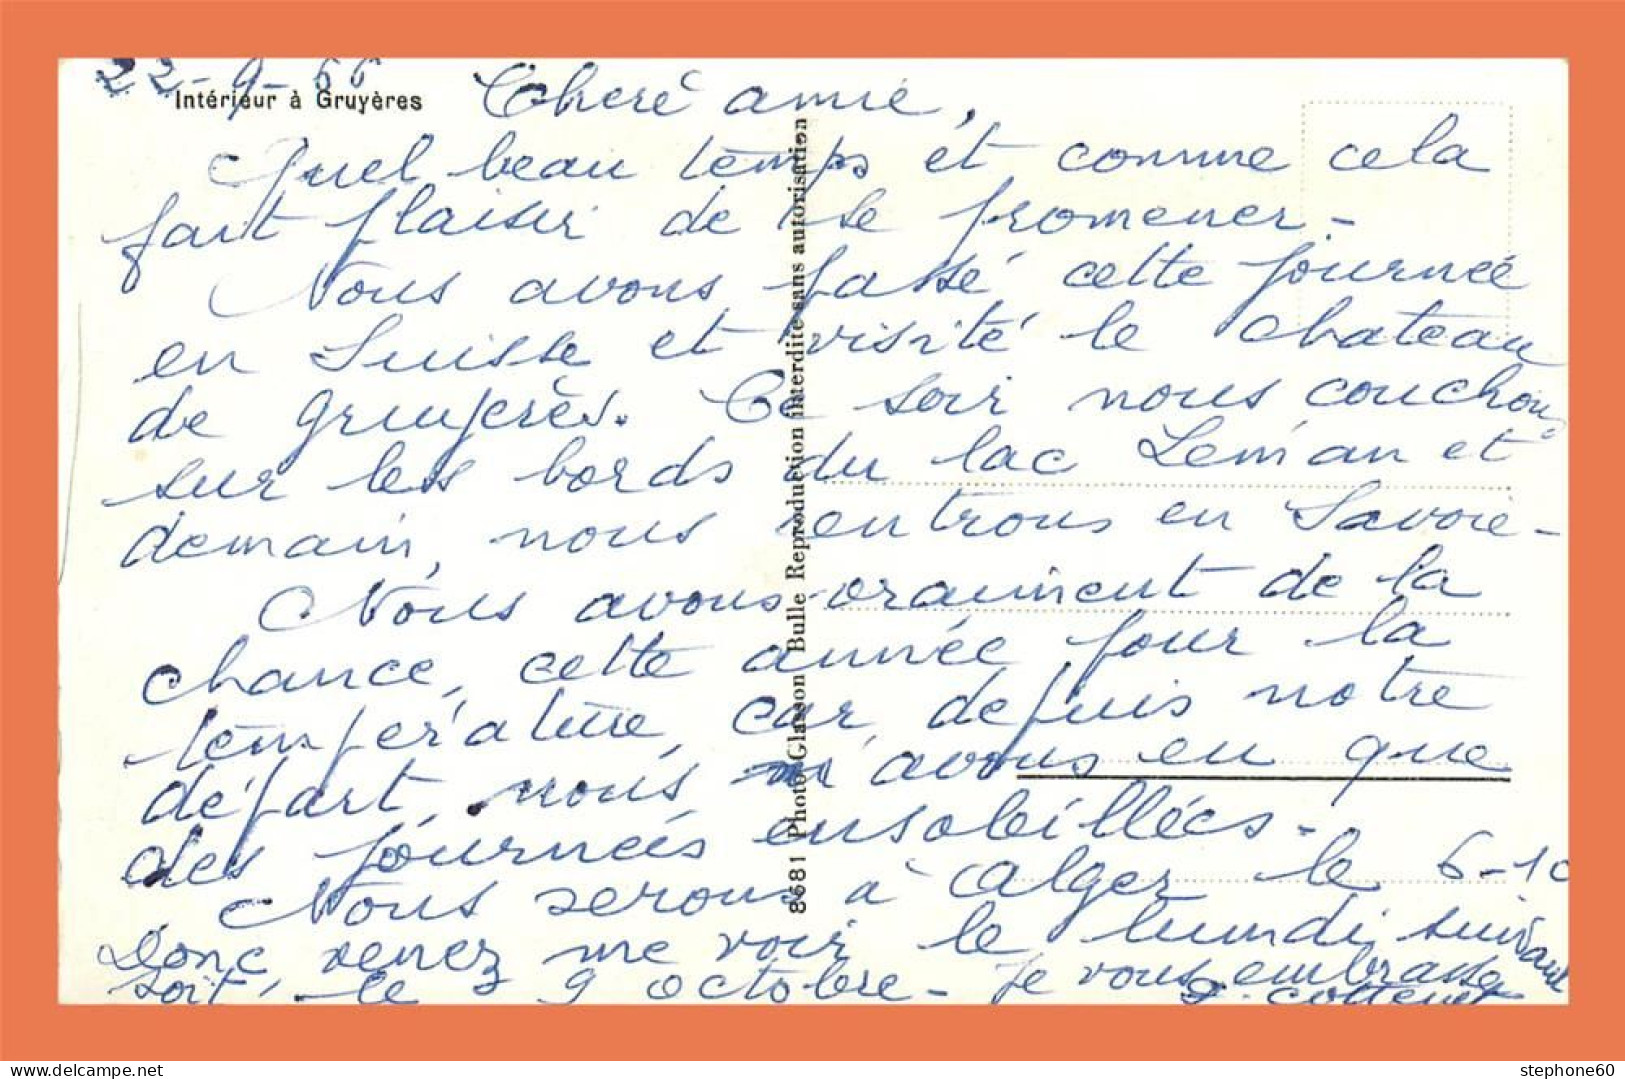 22-9-66
Intérieur à Gruyères
Chère amie,
Quel beau temps et comme cela
fait plaisir de se promener -
Nous avons passé cette journée
en Suisse et visité le chateau
de gruyères. Ce soir nous couchons
sur les bords du lac Léman et
demain, nous entrons en Savoie -
Nous avons vraiment de la
chance, cette année pour la
température, car, depuis notre
départ, nous n'avons eu que
des journées ensoleillées -
Nous serons à Alger le 6-10
Donc venez me voir le lundi suivant
soit, le 9 octobre - Je vous embrasse
8681 Photo Glasson Bulle Reproduction interdite sans autorisation
stephone60